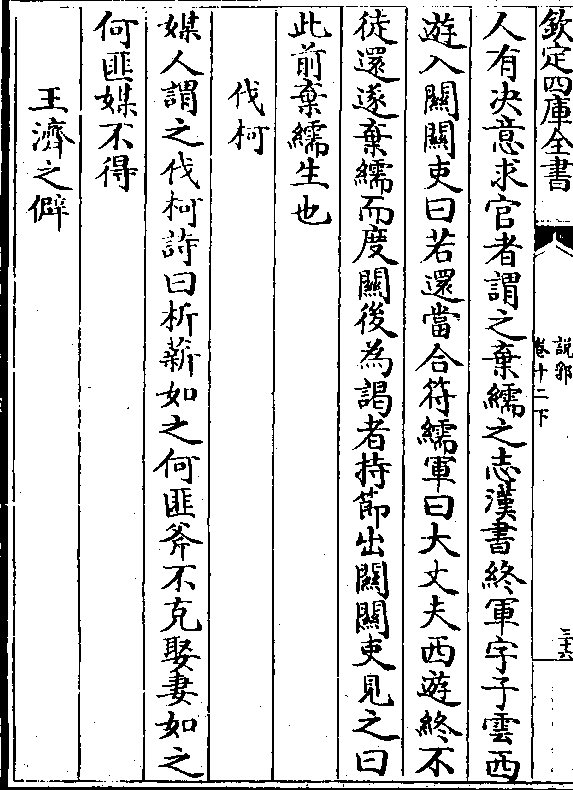 欽定四庫全書
說郛
卷十二下
三十六
人有决意求官者謂之棄繻之志漢書終軍字子雲西
遊入關關吏曰若還當合符繻軍曰大丈夫西遊終不
徒還遂棄繻而度關後為謁者持節出關關吏見之曰
此前棄繻生也
伐柯
媒人謂之伐柯詩曰析薪如之何匪斧不克娶妻如之
何匪媒不得
王濟之僻